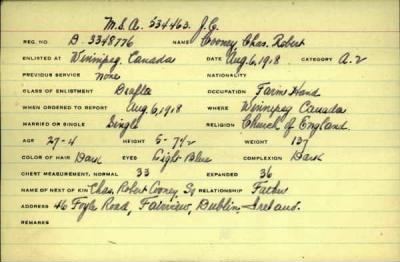 M.S.A. 534463. J.C.
REG. NO. D 3348776 NAME Cooney, Chas. Robert
ENLISTED AT Winnipeg, Canada DATE Aug. 6, 1918 CATEGORY A.2
PREVIOUS SERVICE None NATIONALITY
CLASS OF ENLISTMENT Draftee OCCUPATION Farm Hand
WHEN ORDERED TO REPORT Aug. 6, 1918 WHERE Winnipeg Canada
MARRIED OR SINGLE Single RELIGION Church of England.
AGE 27-4 HEIGHT 5-7½ WEIGHT 137
COLOR OF HAIR Dark EYES Light Blue COMPLEXION Dark
CHEST MEASUREMENT, NORMAL 33 EXPANDED 36
NAME OF NEXT OF KIN Chas. Robert Cooney Sr RELATIONSHIP Father
ADDRESS 46 Foyle Road, Fairview, Dublin - Ireland.
REMARKS